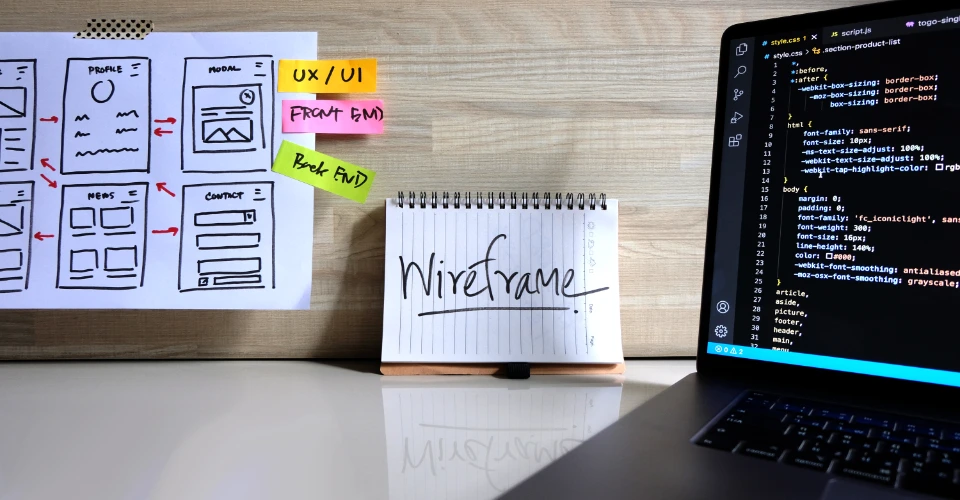 PROFILE
MODAL
NEWS
CONTACT
UX / UI
FRONT END
Back END
Wireframe
style.css 1 X
JS script.js
togo-singl
# style.css > .section-product-list
1 *,
2 *:before,
3 *:after {
4 -webkit-box-sizing: border-box;
5 -moz-box-sizing: border-box;
6 box-sizing: border-box;
7 }
8 html {
9 font-family: sans-serif;
10 font-size: 10px;
11 -ms-text-size-adjust: 100%;
12 -webkit-text-size-adjust: 100%;
13 -webkit-tap-highlight-color: rgb
14 }
15 body {
16 margin: 0;
17 padding: 0;
18 font-family: 'fc_iconiclight', sans
19 font-weight: 300;
20 font-size: 16px;
21 line-height: 140%;
22 color: #000;
23 -webkit-font-smoothing: antialiased
24 -moz-osx-font-smoothing: grayscale;
25 }
26 article,
27 aside,
28 picture,
29 footer,
30 header,
31 main,
32 menu
0 2